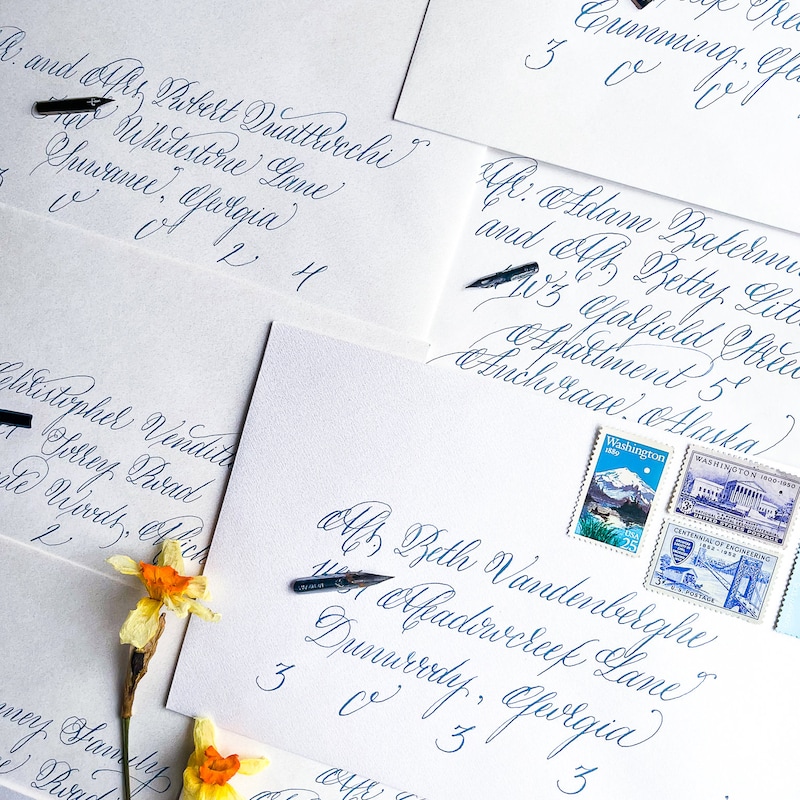 and Mrs. Robert Quattrocchi
Whitestone Lane
Suwanee, Georgia
3 0 0 2 4
Cumming, Ge
3 0 0
Mr. Adam Bakerm
and Ms. Betty Litt
Garfield Street
Apartment 5
Anchorage, Alaska
Christopher Vendit
Torrey Road
Woods, Mich
2
Washington
1889
USA
25
WASHINGTON 1800-1950
3¢
UNITED STATES POSTAGE
CENTENNIAL OF ENGINEERING
1852-1952
3¢ U.S. POSTAGE
Ms. Beth Vandenberghe
Meadowcreek Lane
Dunwoody, Georgia
3 0 3 3
Family
Road